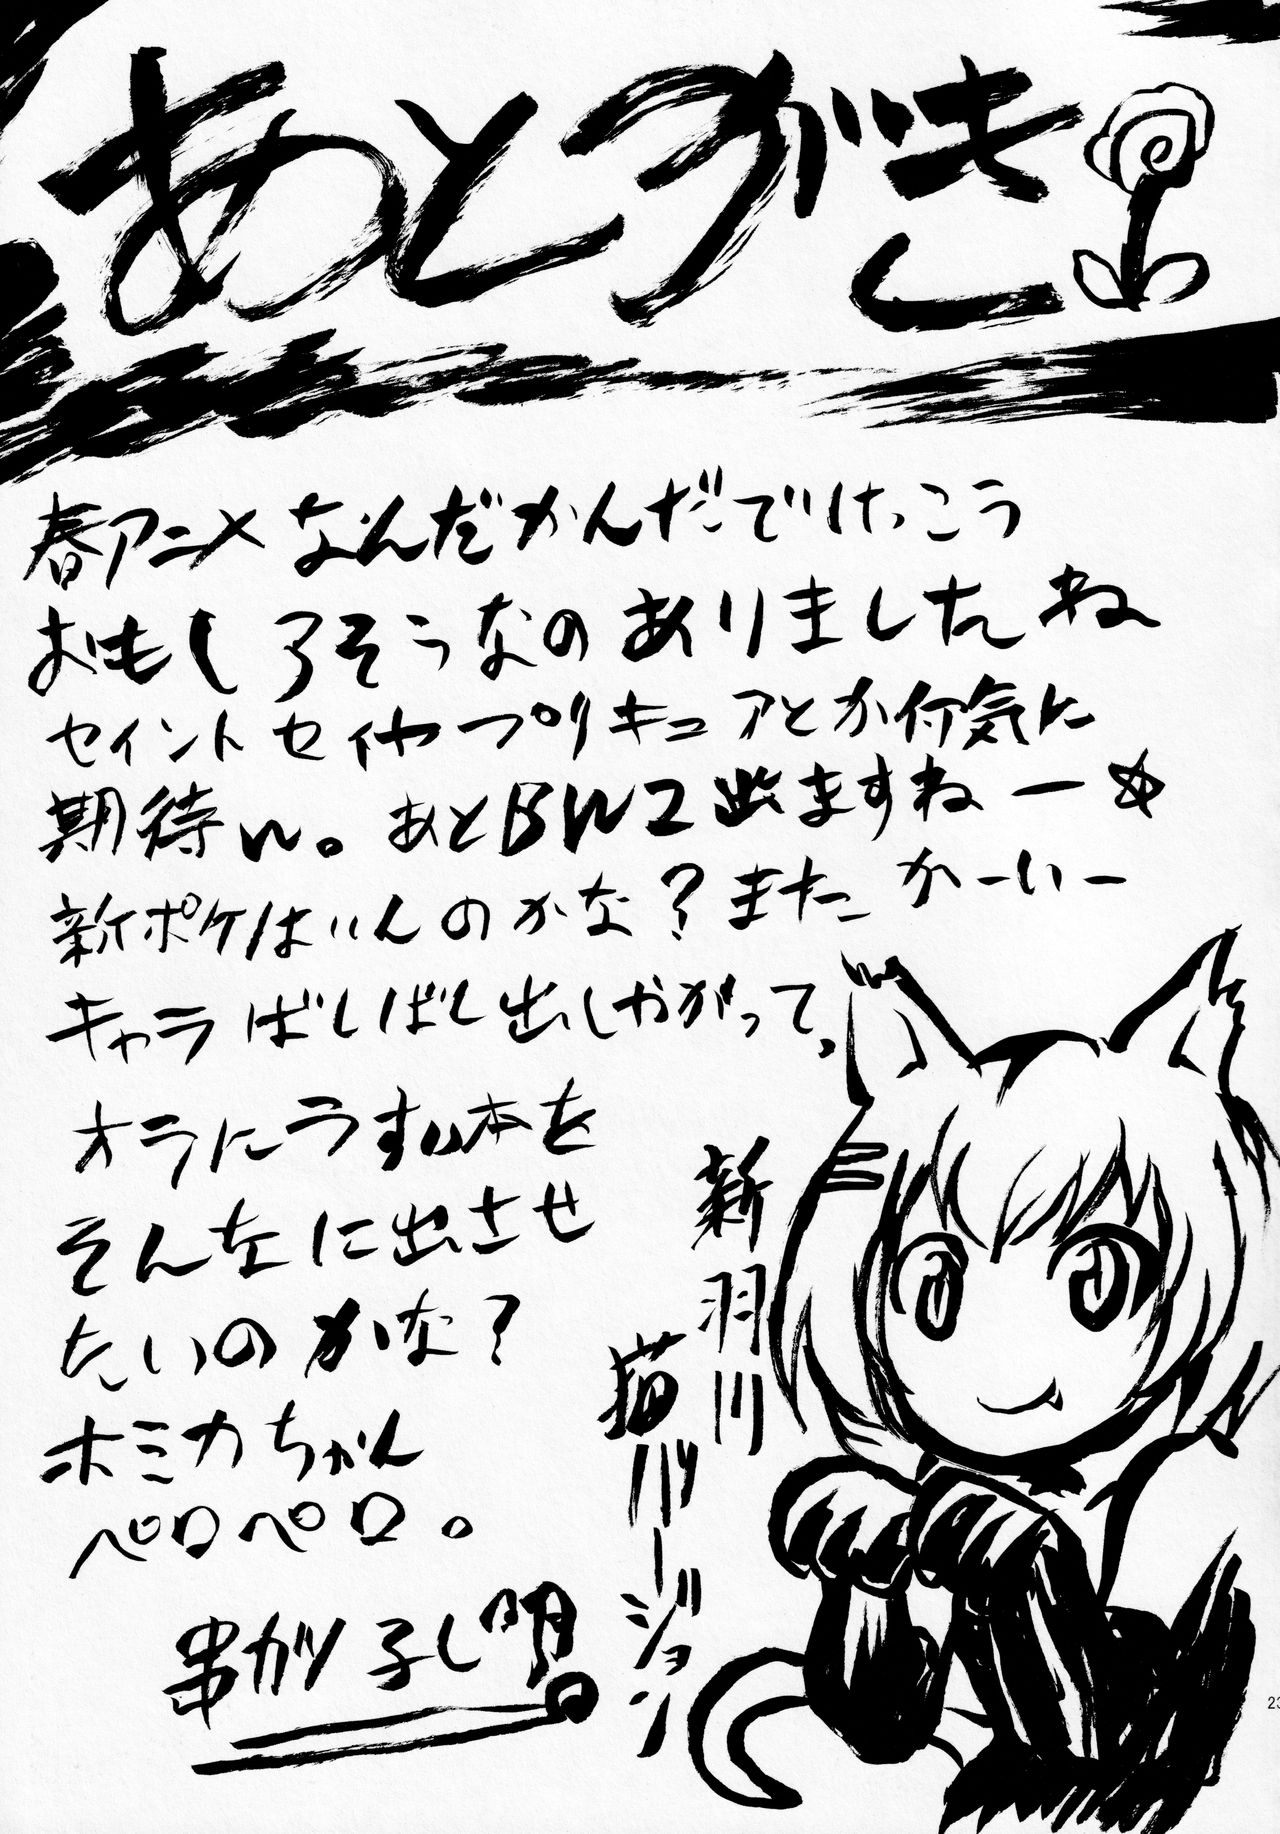 あとがき
春アニメなんだかんだでけっこう
おもしろそうなのありましたね
セイントセイヤやプリキュアとか何気に
期待w。あとBW2出ますねー☆
新ポケはいんのかな？またかーいー
キャラばしばし出しやがって、
オラにうすい本を
そんなに出させ
たいのかな？
ホミカちゃん
ペロペロ。
串カツ子し明
新羽川
猫バージョン
23